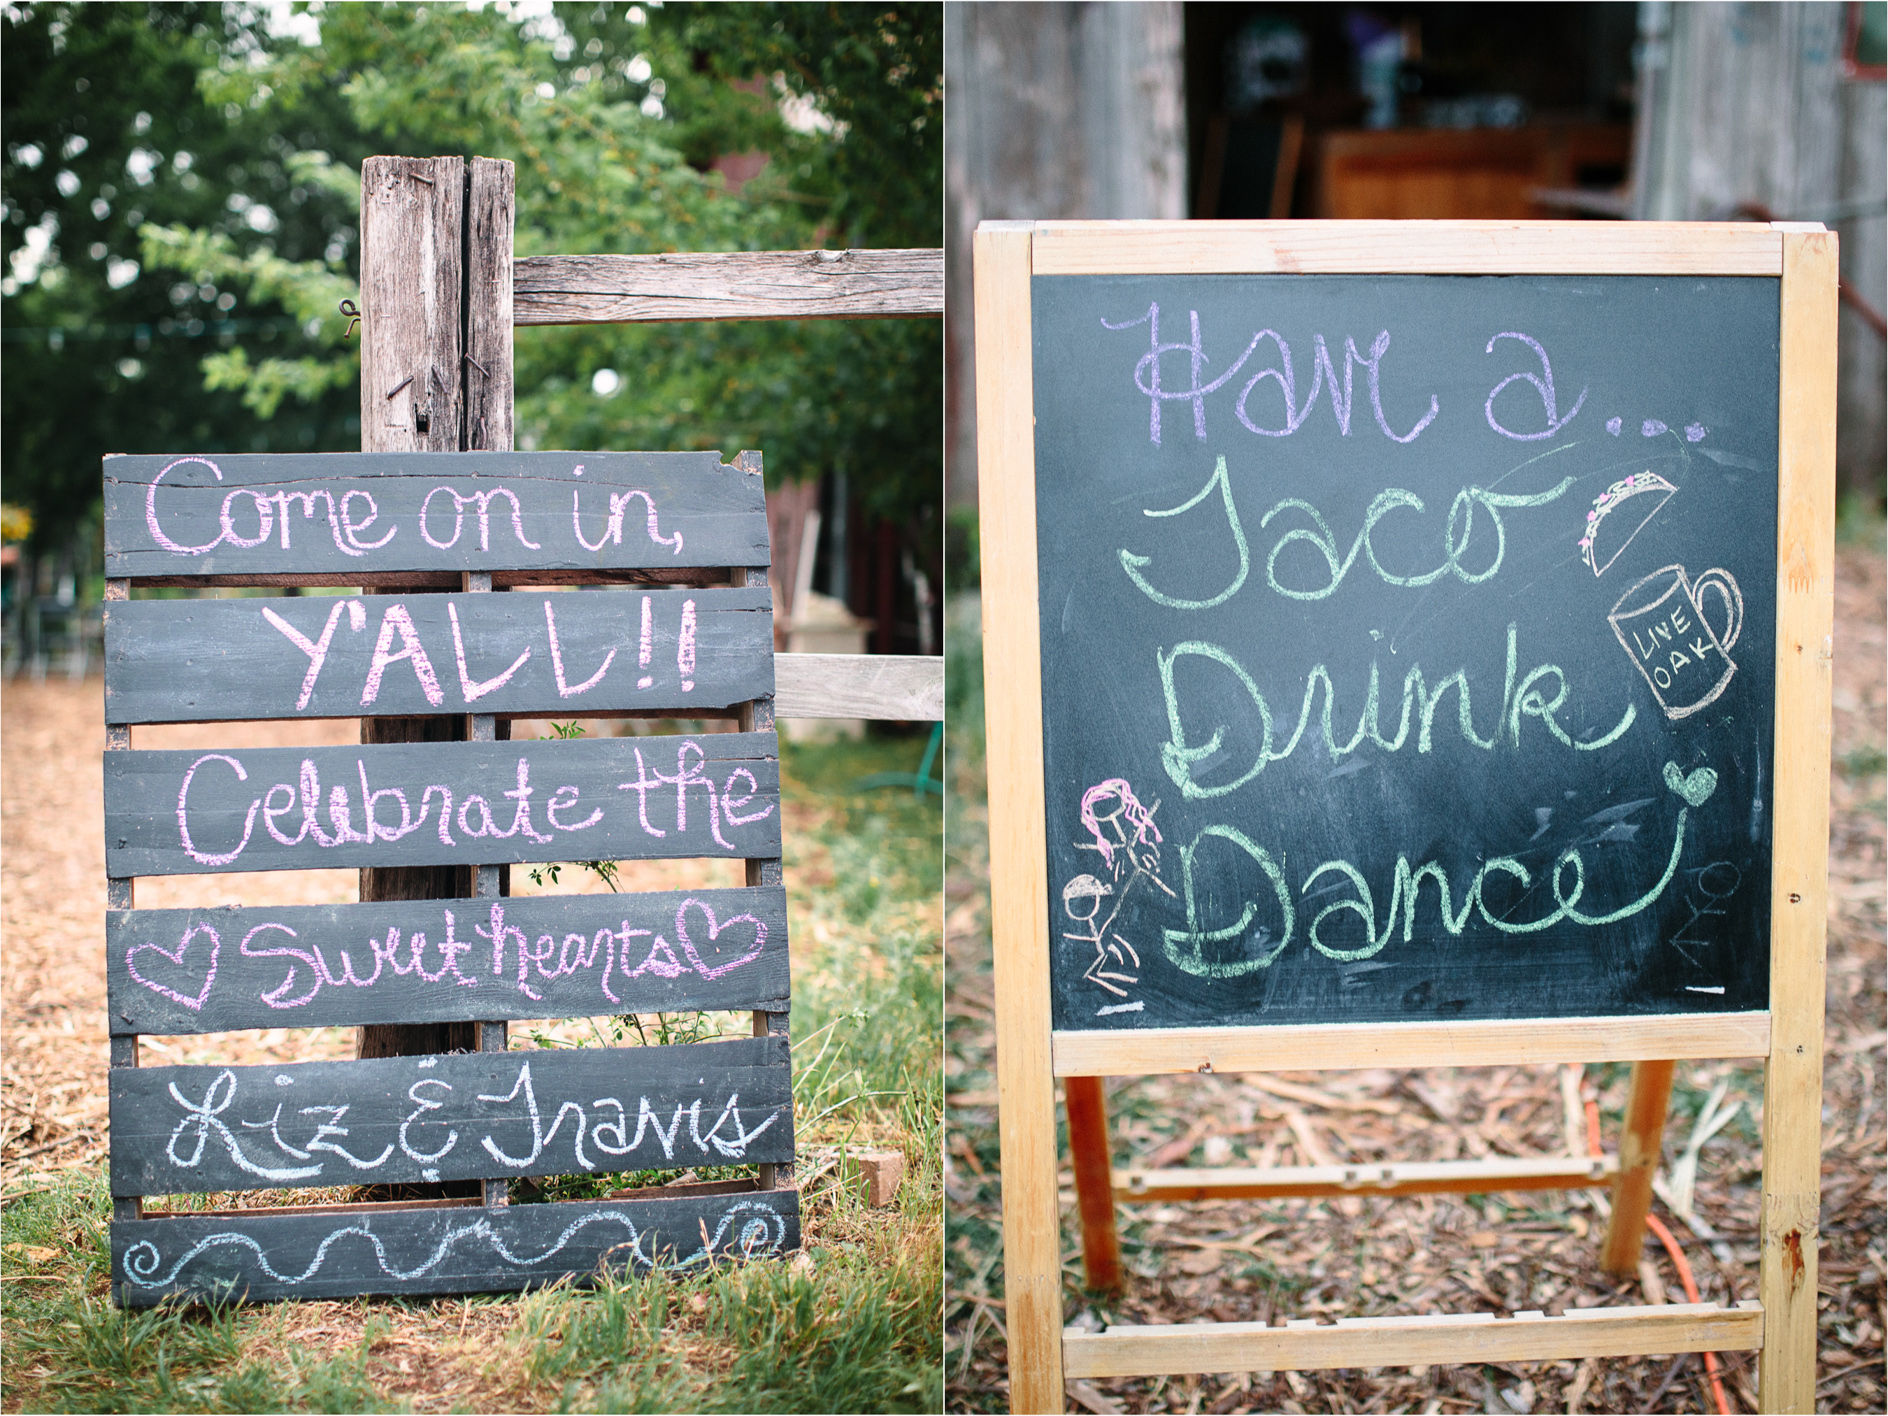 Come on in,
Y'ALL!!
Celebrate the
Sweethearts
Liz & Travis
Have a...
Taco
Drink
Dance
LIVE
OAK